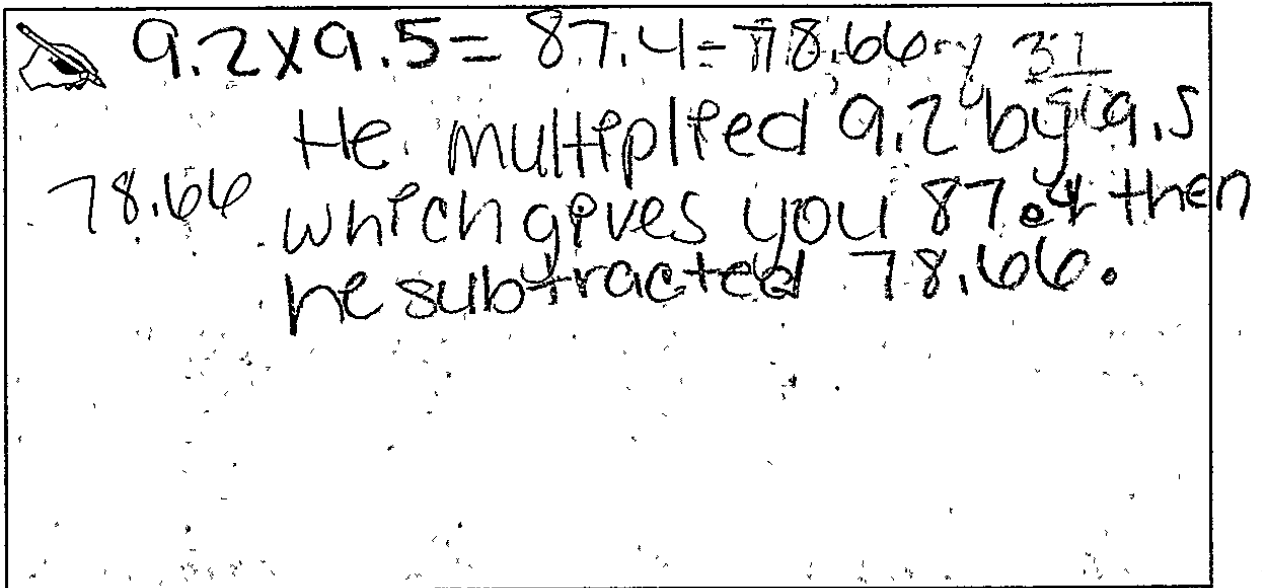 9.2x9.5= 87.4-78.66
He multiplied 9.2 by 9.5
78.66 which gives you 87.4 then
he subtracted 78.66.